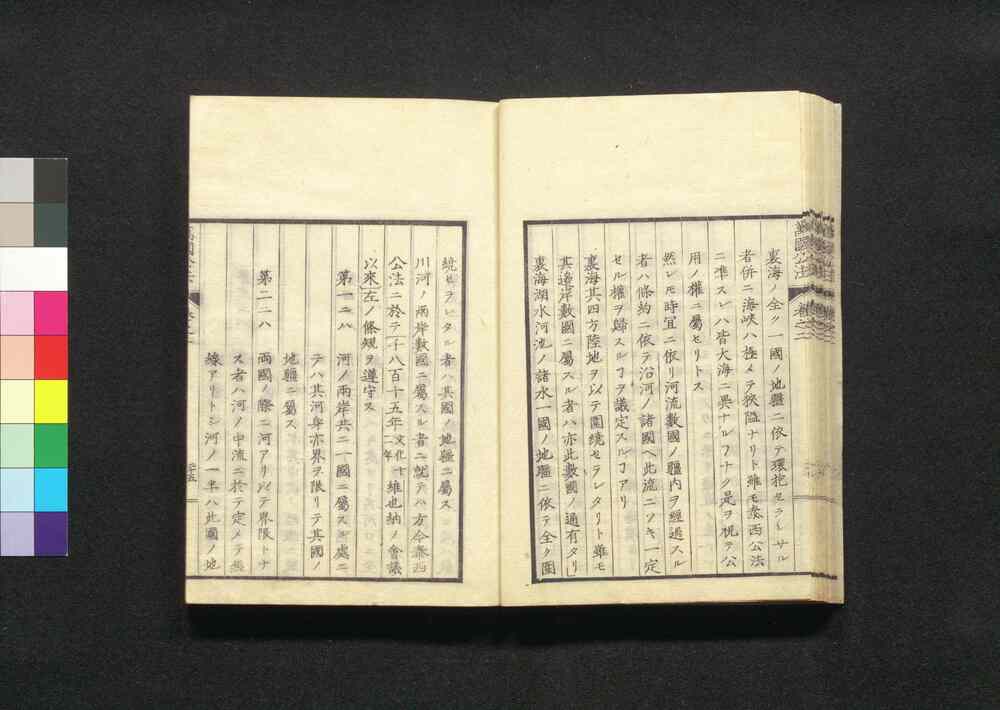 萬國公法 卷之二
裏海ノ全ク一國ノ地疆ニ依テ環抱セラレサル
者併ニ海峽ハ極メテ狹隘ナリト雖モ泰西公法
ニ準スレハ皆大海ニ異ナルヿナク是ヲ視テ公
用ノ權ニ屬セリトス
然レモ時宜ニ依リ河流數國ノ疆内ヲ經過スル
者ハ條約ニ依テ沿河ノ諸國ヘ此流ニツキ一定
セル權ヲ歸スルヿヲ議定スルヿアリ
裏海其四方陸地ヲ以テ圍繞セラレタリト雖モ
其邊岸數國ニ屬スル者ハ亦此數國ノ通有タリ
裏海湖水河沼ノ諸水一國ノ地疆ニ依テ全ク圍
繞セラレタル者ハ其國ノ地疆ニ屬ス
川河ノ兩岸數國ニ屬スル者ニ就テハ方今泰西
公法ニ於テ千八百十五年文化十二年維也納ノ會議
以來左ノ條規ヲ遵守ス
第一二八 河ノ兩岸共ニ一國ニ屬スル處ニ
テハ其河身亦界ヲ限リテ其國ノ
地疆ニ屬ス
第二二八 兩國ノ際ニ河アリ以テ界限トナ
ス者ハ河ノ中流ニ於テ定メテ
線アリトシ河ノ一半ハ此國ノ地